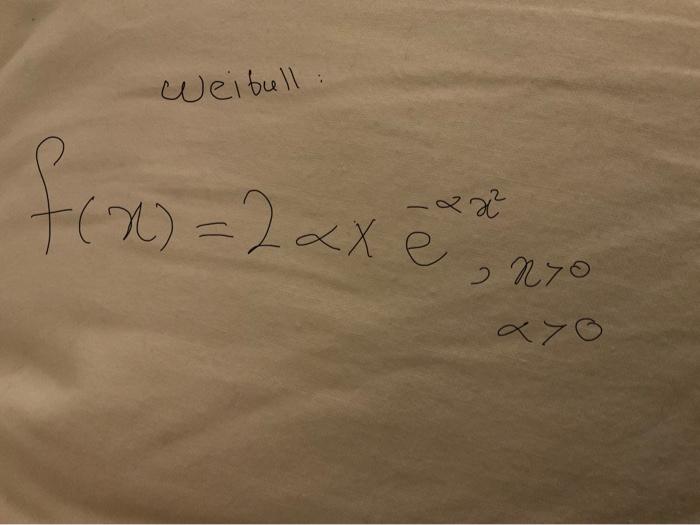 Weibull :
f(x) = 2αx e^{-αx²}, x>0
α>0